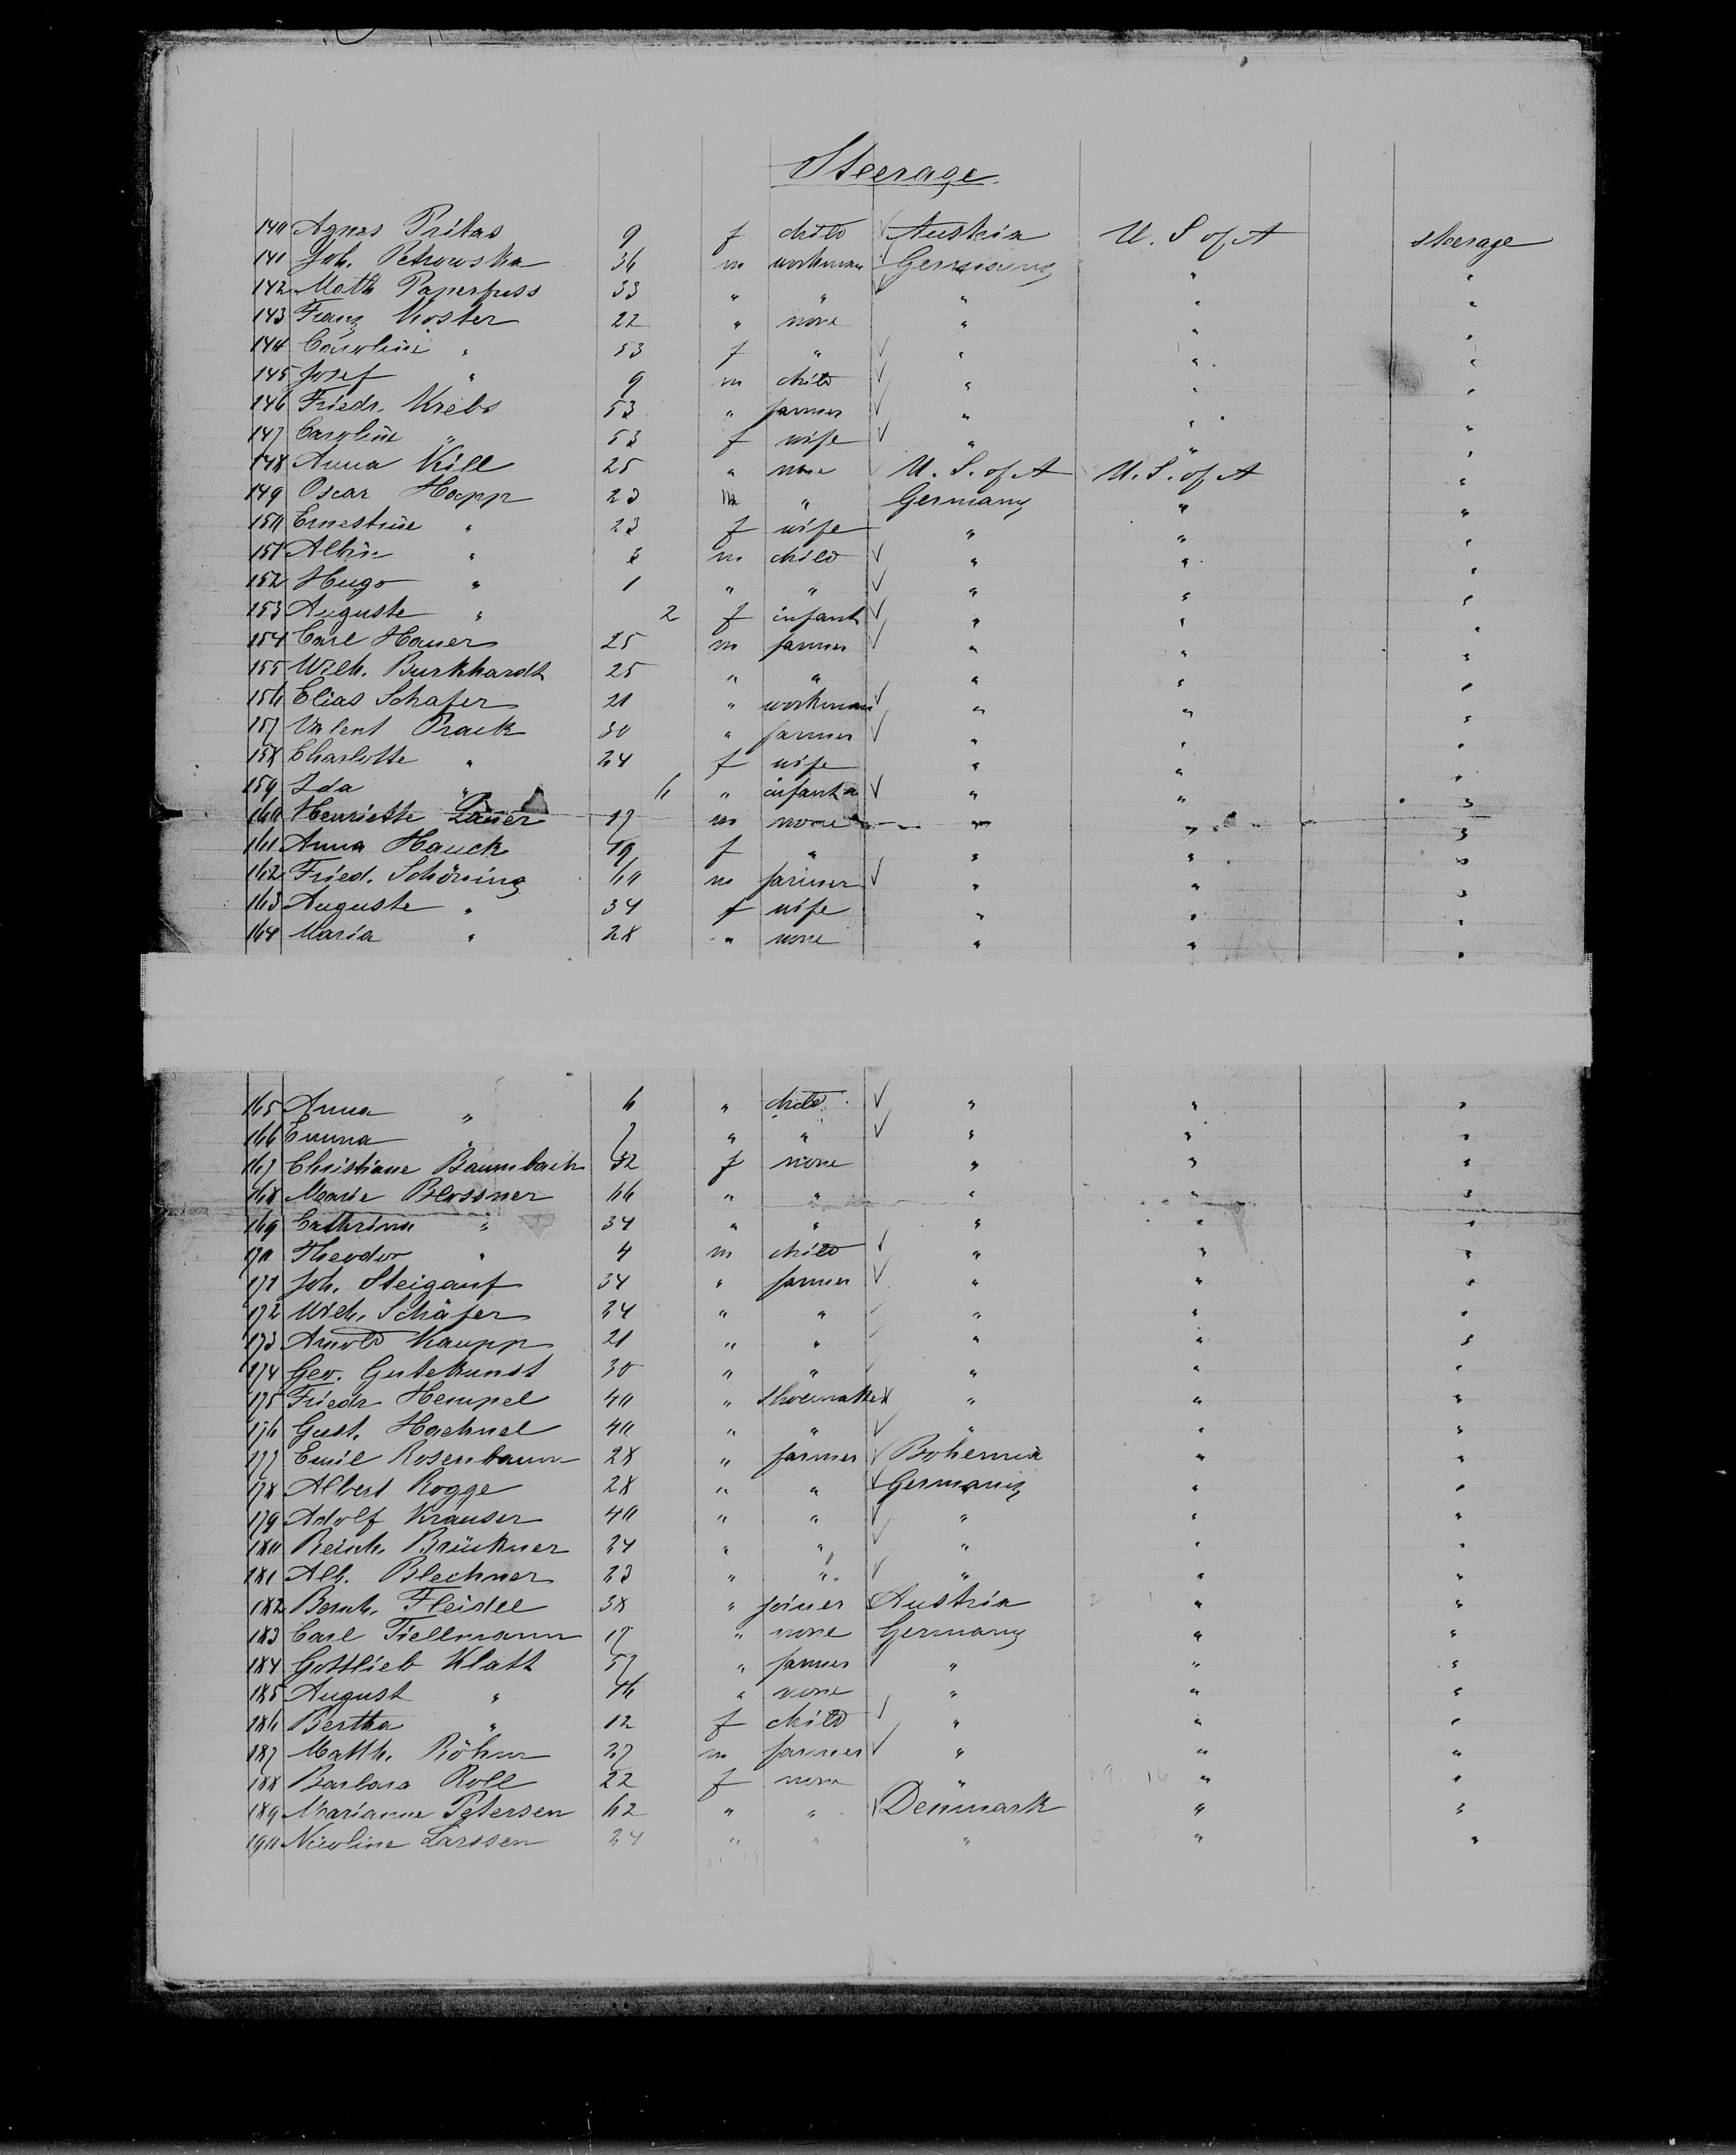 Steerage.
140 Agnes Pritas 9 f child ✓ Austria U. S of A steerage
141 Joh. Petrowska 36 m workman ✓ Germany " "
142 Math. Papenfuss 33 " " " " "
143 Franz Koster 22 " none " " "
144 Caroline " 53 f " ✓ " " "
145 Josef " 9 m child ✓ " " "
146 Friedr. Krebs 53 " farmer ✓ " " "
147 Caroline " 53 f wife ✓ " " "
148 Anna Kill 25 " none U. S. of A U. S. of A "
149 Oscar Happ 23 m " Germany " "
150 Ernestine " 23 f wife " " "
151 Albin " 3 m child ✓ " " "
152 Hugo " 1 " " ✓ " " "
153 Auguste " 2 f infant ✓ " " "
154 Carl Hauer 25 m farmer ✓ " " "
155 Wilh. Burkhardt 25 " " " " "
156 Elias Schafer 21 " workman ✓ " " "
157 Valent Prack 30 " farmer ✓ " " "
158 Charlotte " 24 f wife " " "
159 Ida " 6 " infant ✓ " " "
160 Henriette Lauer 17 m none " " "
161 Anna Hauck 19 f " " " "
162 Fried. Schöning 60 m farmer ✓ " " "
163 Auguste " 34 f wife " " "
164 Maria " 28 " none " " "
165 Anna " 6 " child ✓ " " "
166 Emma " 7 " " ✓ " " "
167 Christiane Baumbach 52 f none " " "
168 Marie Blossner 66 " " " " "
169 Cathrina " 34 " " " " "
170 Theodor " 4 m child ✓ " " "
171 Joh. Steigauf 34 " farmer ✓ " " "
172 Wilh. Schäfer 24 " " ✓ " " "
173 Arnold Kaupp 21 " " ✓ " " "
174 Geo. Gutekunst 30 " " ✓ " " "
175 Friedr Hempel 40 " Shoemaker ✓ " " "
176 Gust. Haehnel 40 " " ✓ " " "
177 Emil Rosenbaum 28 " farmer ✓ Bohemia " "
178 Albert Rogge 28 " " ✓ Germany " "
179 Adolf Krauser 40 " " ✓ " " "
180 Reinh. Brückner 24 " " ✓ " " "
181 Alb. Blechner 23 " " ✓ " " "
182 Bernh. Fleidel 38 " joiner Austria " "
183 Carl Tiellmann 17 " none Germany " "
184 Gottlieb Klatt 57 " farmer ✓ " " "
185 August " 16 " none " " "
186 Bertha " 12 f child ✓ " " "
187 Matth. Röhm 27 m farmer ✓ " " "
188 Barbara Roll 22 f none " " "
189 Marianne Petersen 62 " " ✓ Denmark " "
190 Nicoline Larssen 24 " " " " "